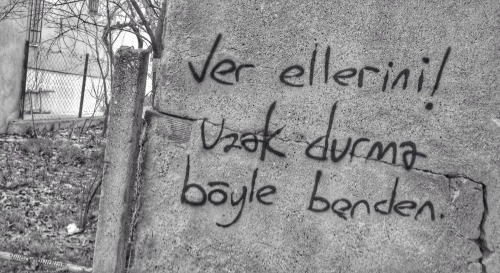 Ver ellerini!
Uzak durma
böyle benden.